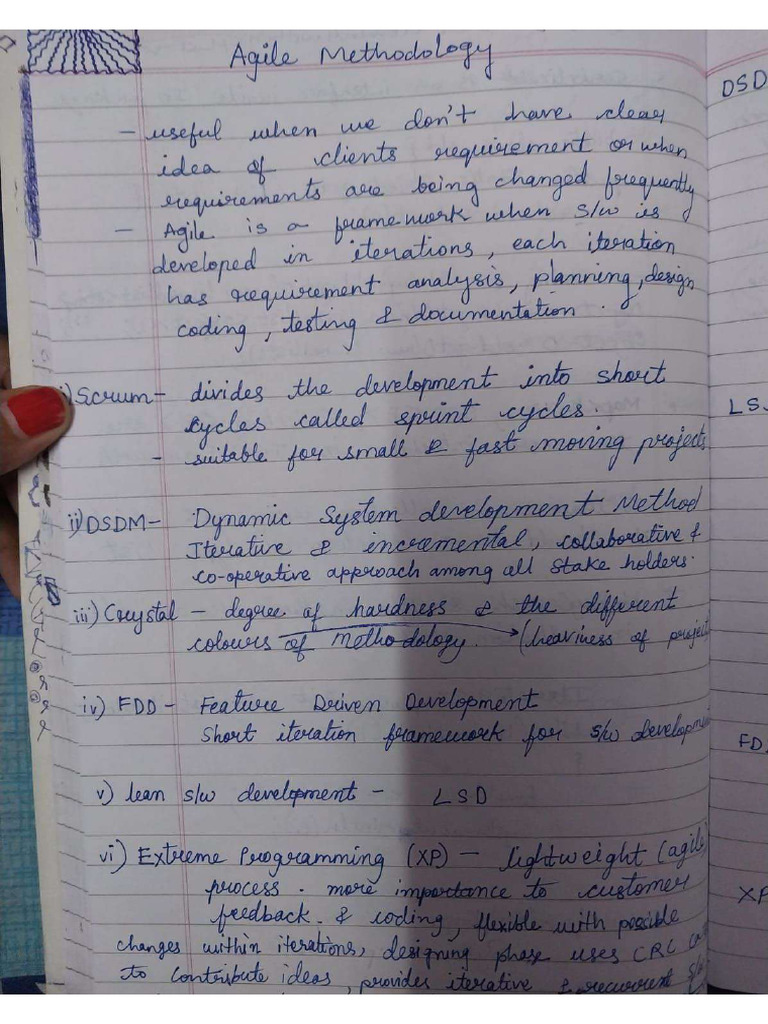 Agile Methodology
- useful when we don't have clear
idea of clients requirement or when
requirements are being changed frequently
- Agile is a framework when s/w is
developed in iterations, each iteration
has requirement analysis, planning, design
coding, testing & documentation.
i) Scrum - divides the development into short
cycles called sprint cycles.
- suitable for small & fast moving projects
ii) DSDM - Dynamic System development Method
Iterative & incremental, collaborative &
co-operative approach among all stake holders.
iii) Crystal - degree of hardness & the different
colours of methodology. (heaviness of project
iv) FDD - Feature Driven Development
Short iteration framework for s/w developm
v) lean s/w development - LSD
vi) Extreme Programming (XP) - lightweight (agile)
process. more importance to customer
feedback. & coding, flexible with possible
changes within iterations, designing phase uses CRC
to contribute ideas, provides iterative & recurrent
DSD
LS
FD
XP